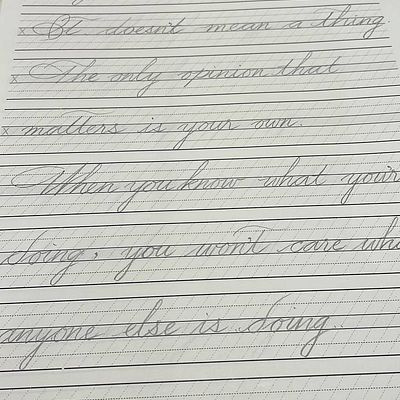 x It doesn't mean a thing.
x The only opinion that
x matters is your own.
When you know what your
doing, you won't care
anyone else is doing.